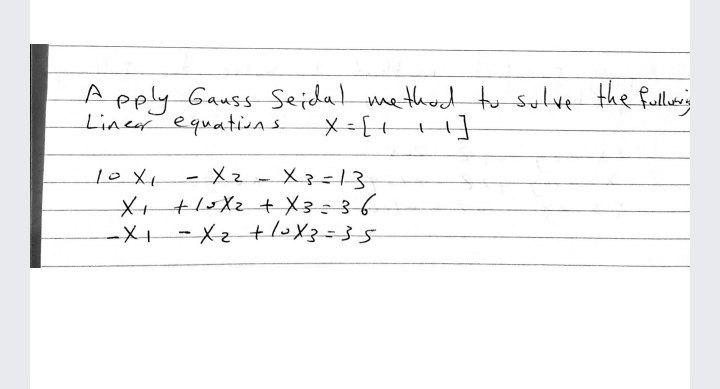 Apply Gauss Seidal method to solve the following
Linear equations X = [1 1 1]
10 X1 - X2 - X3 = 13
X1 + 10X2 + X3 = 36
-X1 - X2 + 10X3 = 35